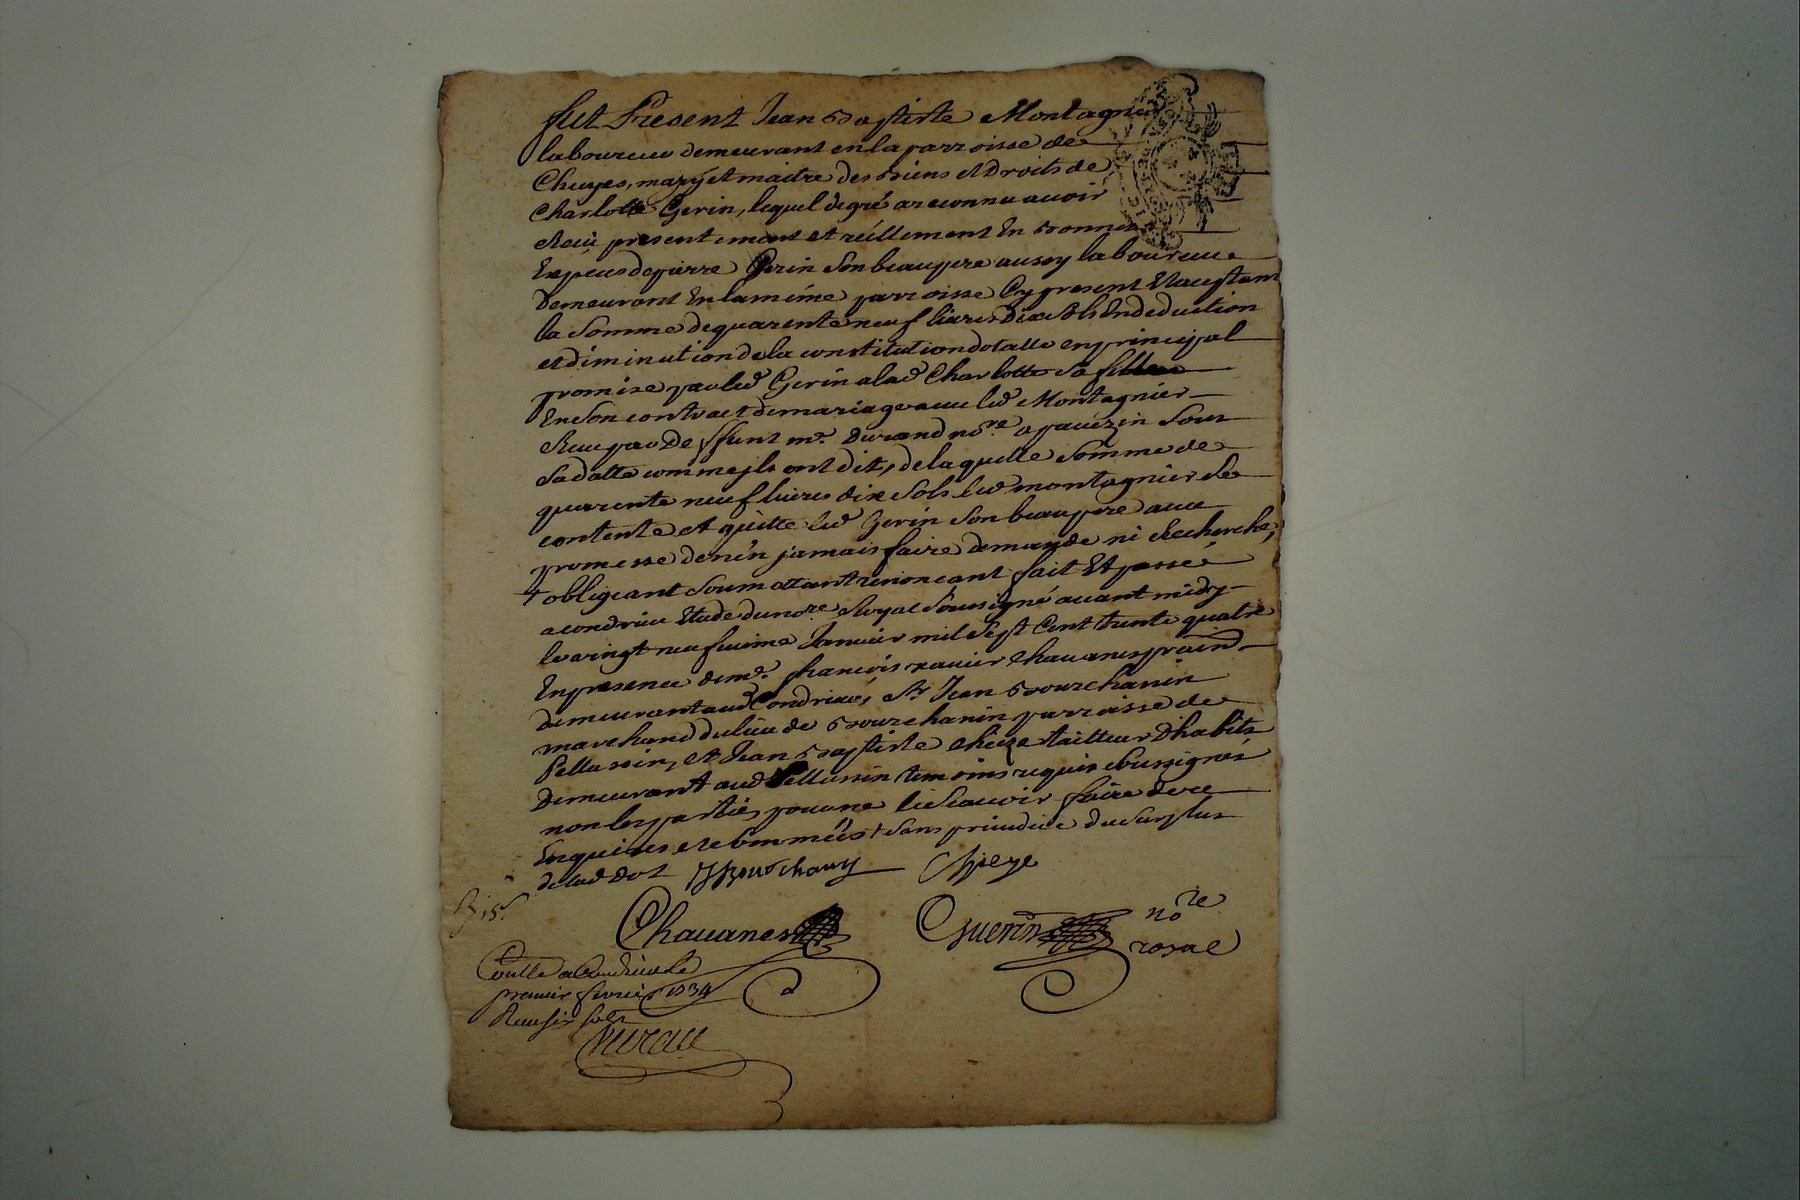 fut Present Jean Baptiste Montagnier
laboureur demeurant en la parroisse de
Chuyes, mary et maitre des biens et droits de
Charlotte Gerin, lequel de gré a reconnu avoir
Receu presentement et réellement en bonnes
Espèces de pierre Gerin son beaupere aussy laboureur
demeurant en la méme parroisse Cy present et acceptant
la somme de quarente neuf livres dix sols En deduction
et diminution de la constitution dotalle en principal
promise par led Gerin a lad Charlotte sa fille
En son contract de mariage avec led Montagnier
Receu par deffunt me. Durand nore a pavezin sous
sa datte comme jls ont dit, de laquelle somme de
quarente neuf livres dix sols led montagnier se
contente et quitte led Gerin son beaupere avec
promesse de n'en jamais faire demande ni Recherche,
obligeant soumattant renonceant fait Et passé
a condrieu Etude du nore Royal soussigné avant midy
le vingt neufvieme Janvier mil sept cent trente quatre
En presence de me. francois xavier Chavanes
demeurant aud Condrieu, sr Jean Bourchanin
marchand du lieu de Bourchanin parroisse de
Pellussin, et Jean Baptiste chieze tailleur d'habits
demeurant aud Pellussin temoins requis soussignés
non les parties pour ne le scavoir faire de ce
Enquises et sommées + sans prejudice du surplus
de lad dot JBourchany Chieze
15s
Chavanes Guerin nore
royal
Conllé a Condrieu le
premier fevrier 1734
Receu six sols